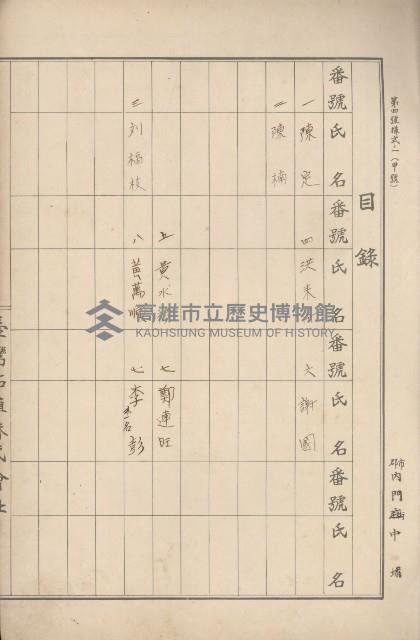 第四號樣式ノ一(甲號)
目錄
番號 氏名 番號 氏名 番號 氏名 番號 氏名
一 陳
四 洪
六 謝國
二 陳楠
五 黃水
七 鄭連旺
三 刘福枝
八 黃萬順
七 李 彭
市郡 內門 庄 中埔
高雄市立歷史博物館
KAOHSIUNG MUSEUM OF HISTORY